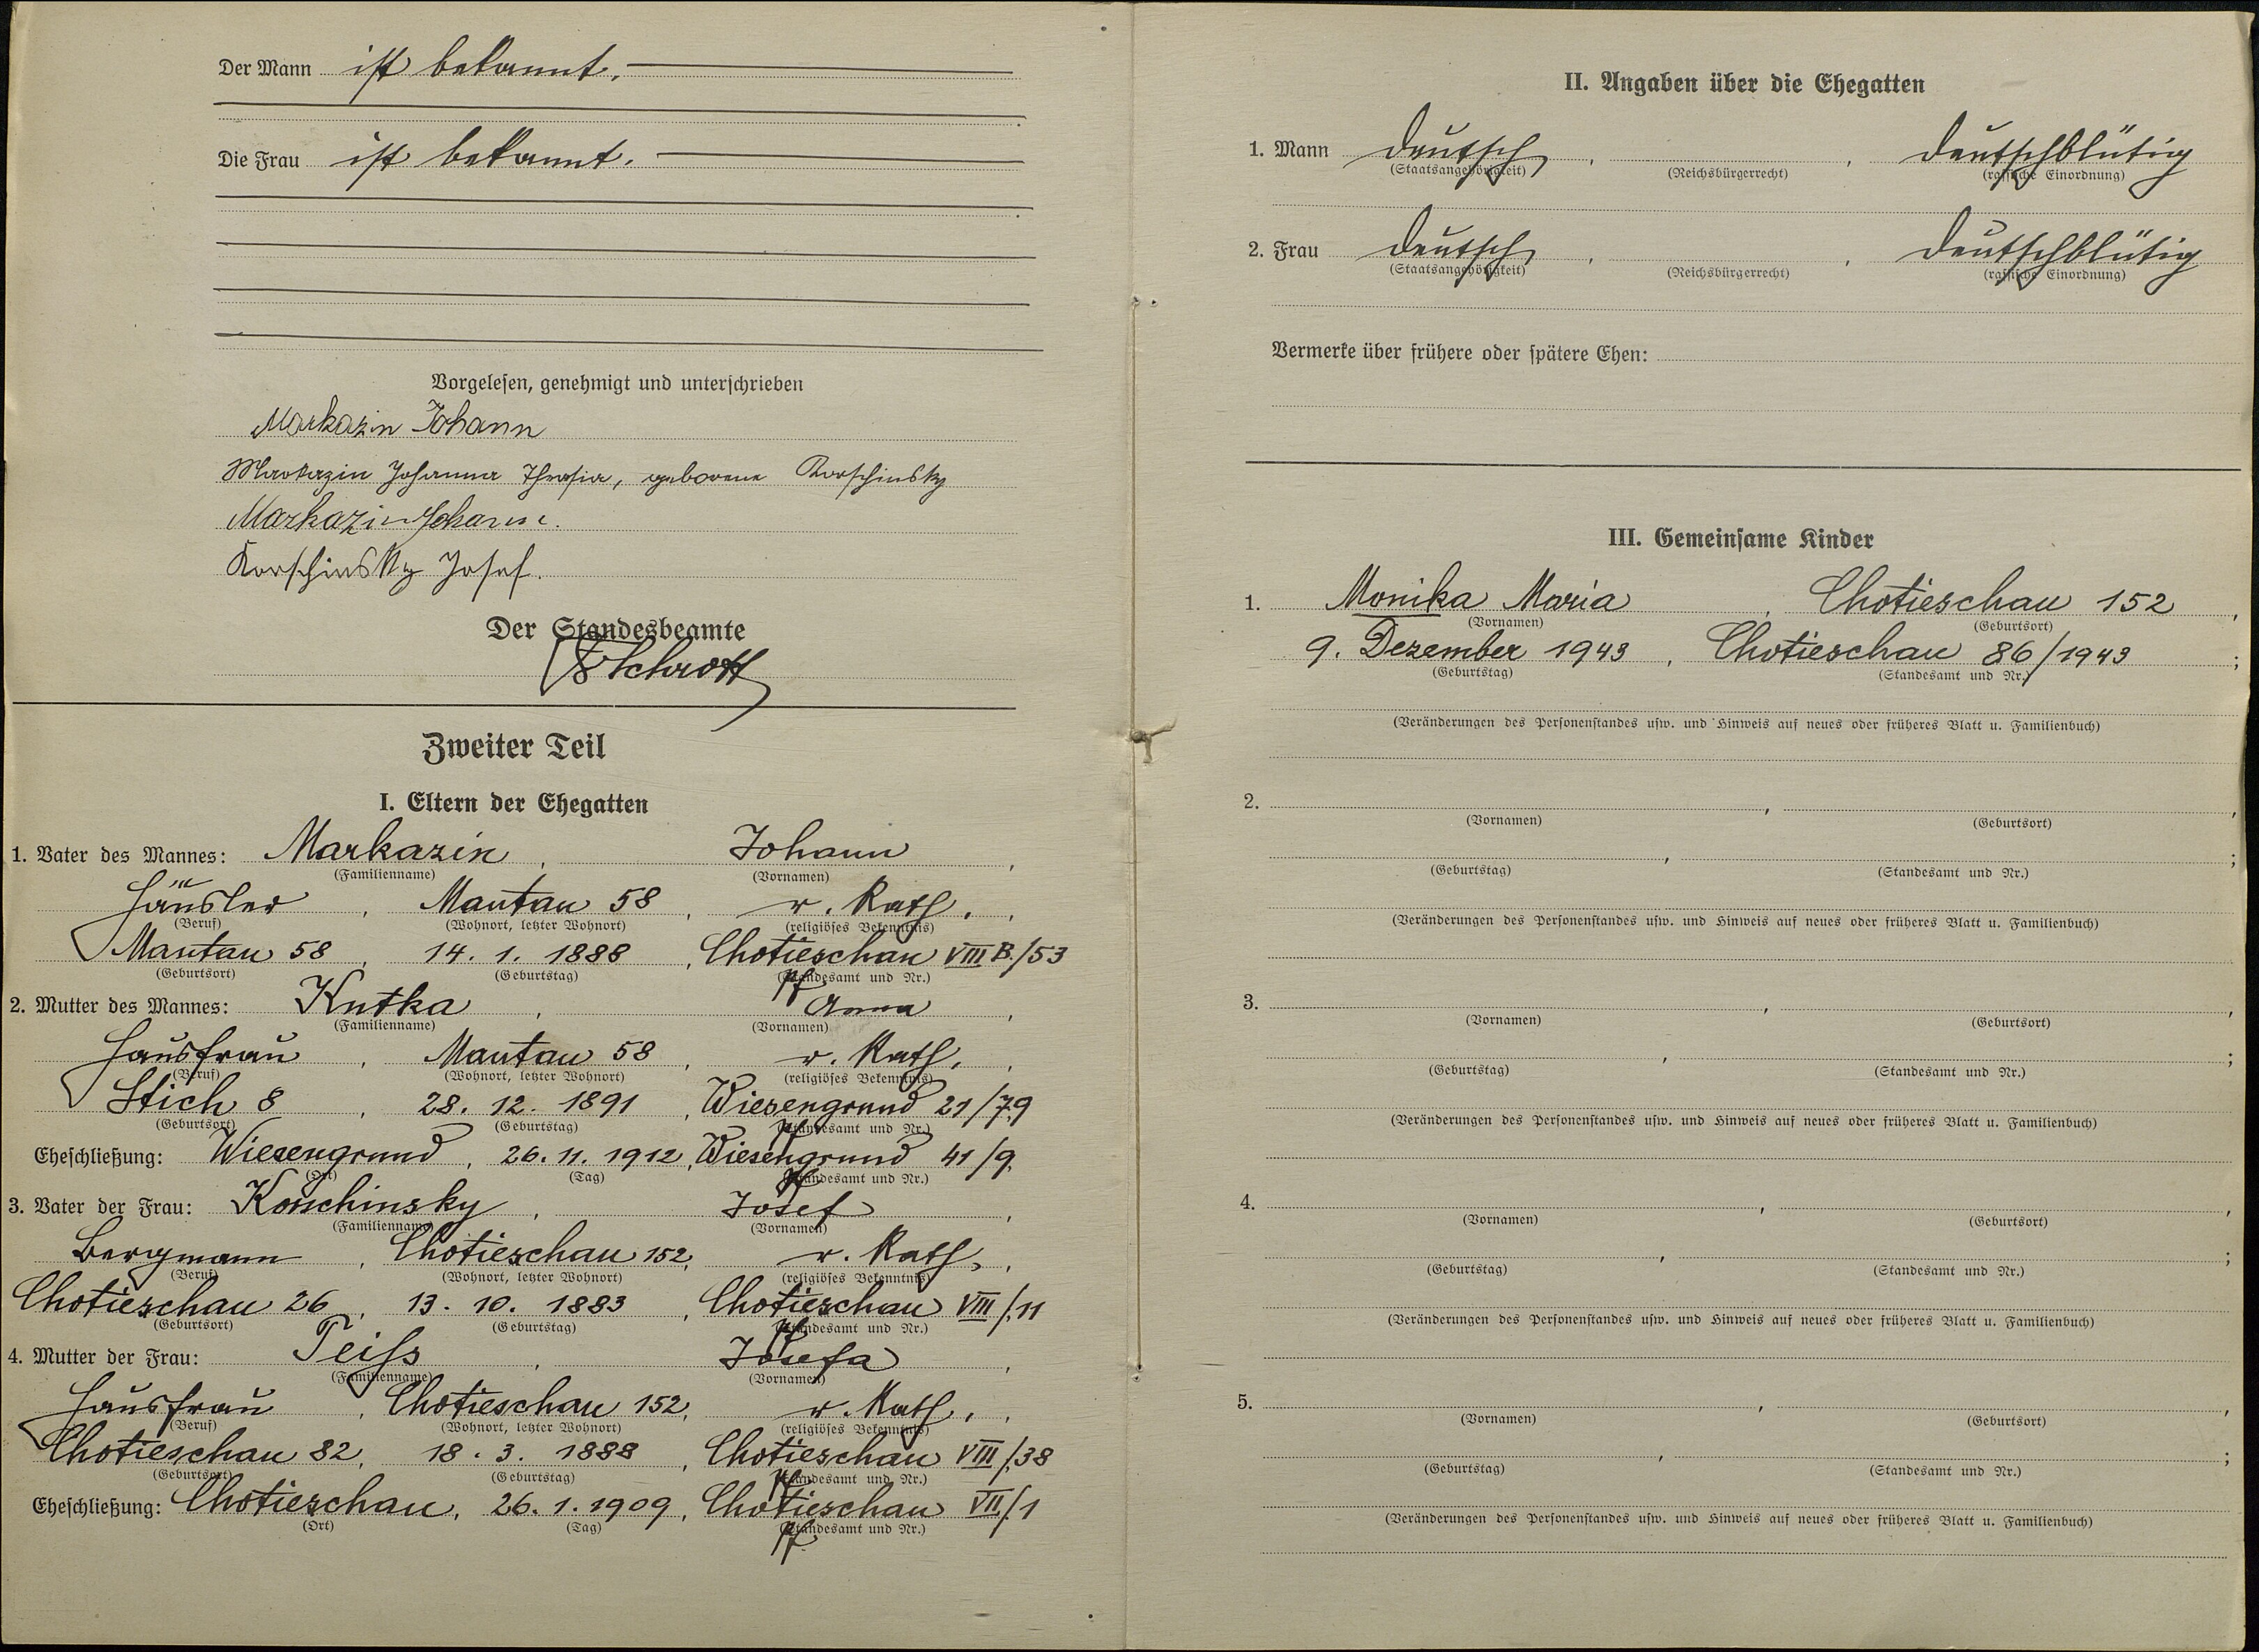 Der Mann ist bekannt.
Die Frau ist bekannt.
Vorgelesen, genehmigt und unterschrieben
Markazin Johann
Markazin Johanna Thresia, geborene Korschinsky
Markazin Johann.
Korschinsky Josef.
Der Standesbeamte
Schrott
Zweiter Teil
I. Eltern der Ehegatten
1. Vater des Mannes: Markazin, Johann,
(Familienname) (Vornamen)
Häusler, Mantau 58, r. kath.,
(Beruf) (Wohnort, letzter Wohnort) (religiöses Bekenntnis)
Mantau 58, 14. 1. 1888, Chotieschau VIII B./53
(Geburtsort) (Geburtstag) (Standesamt und Nr.)
Pf
2. Mutter des Mannes: Kutka, Anna,
(Familienname) (Vornamen)
Hausfrau, Mantau 58, r. kath.,
(Beruf) (Wohnort, letzter Wohnort) (religiöses Bekenntnis)
Stich 8, 28. 12. 1891, Wiesengrund 21/79
(Geburtsort) (Geburtstag) (Standesamt und Nr.)
Pf
Eheschließung: Wiesengrund, 26. 11. 1912, Wiesengrund 41/9.
(Ort) (Tag) (Standesamt und Nr.)
Pf
3. Vater der Frau: Korschinsky, Josef,
(Familienname) (Vornamen)
Bergmann, Chotieschau 152, r. kath.,
(Beruf) (Wohnort, letzter Wohnort) (religiöses Bekenntnis)
Chotieschau 26, 13. 10. 1883, Chotieschau VIII/11
(Geburtsort) (Geburtstag) (Standesamt und Nr.)
Pf
4. Mutter der Frau: Teiss, Josefa,
(Familienname) (Vornamen)
Hausfrau, Chotieschau 152, r. kath.,
(Beruf) (Wohnort, letzter Wohnort) (religiöses Bekenntnis)
Chotieschau 82, 18. 3. 1888, Chotieschau VIII/38
(Geburtsort) (Geburtstag) (Standesamt und Nr.)
Pf
Eheschließung: Chotieschau, 26. 1. 1909, Chotieschau VII/1
(Ort) (Tag) (Standesamt und Nr.)
Pf.
II. Angaben über die Ehegatten
1. Mann deutsch, , deutschblütig
(Staatsangehörigkeit) (Reichsbürgerrecht) (rassische Einordnung)
2. Frau deutsch, , deutschblütig
(Staatsangehörigkeit) (Reichsbürgerrecht) (rassische Einordnung)
Vermerke über frühere oder spätere Ehen:
III. Gemeinsame Kinder
1. Monika Maria, Chotieschau 152,
(Vornamen) (Geburtsort)
9. Dezember 1943, Chotieschau 86/1943;
(Geburtstag) (Standesamt und Nr.)
(Veränderungen des Personenstandes usw. und Hinweis auf neues oder früheres Blatt u. Familienbuch)
2. , ,
(Vornamen) (Geburtsort)
, ;
(Geburtstag) (Standesamt und Nr.)
(Veränderungen des Personenstandes usw. und Hinweis auf neues oder früheres Blatt u. Familienbuch)
3. , ,
(Vornamen) (Geburtsort)
, ;
(Geburtstag) (Standesamt und Nr.)
(Veränderungen des Personenstandes usw. und Hinweis auf neues oder früheres Blatt u. Familienbuch)
4. , ,
(Vornamen) (Geburtsort)
, ;
(Geburtstag) (Standesamt und Nr.)
(Veränderungen des Personenstandes usw. und Hinweis auf neues oder früheres Blatt u. Familienbuch)
5. , ,
(Vornamen) (Geburtsort)
, ;
(Geburtstag) (Standesamt und Nr.)
(Veränderungen des Personenstandes usw. und Hinweis auf neues oder früheres Blatt u. Familienbuch)